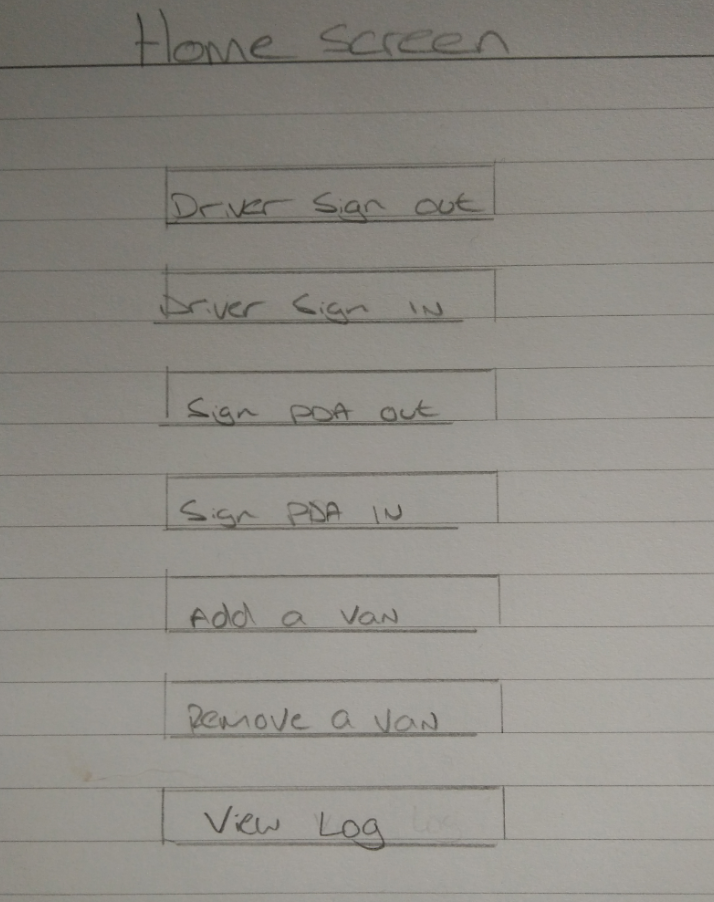 Home Screen
Driver Sign out
Driver Sign IN
Sign PDA out
Sign PDA IN
Add a Van
Remove a Van
View Log